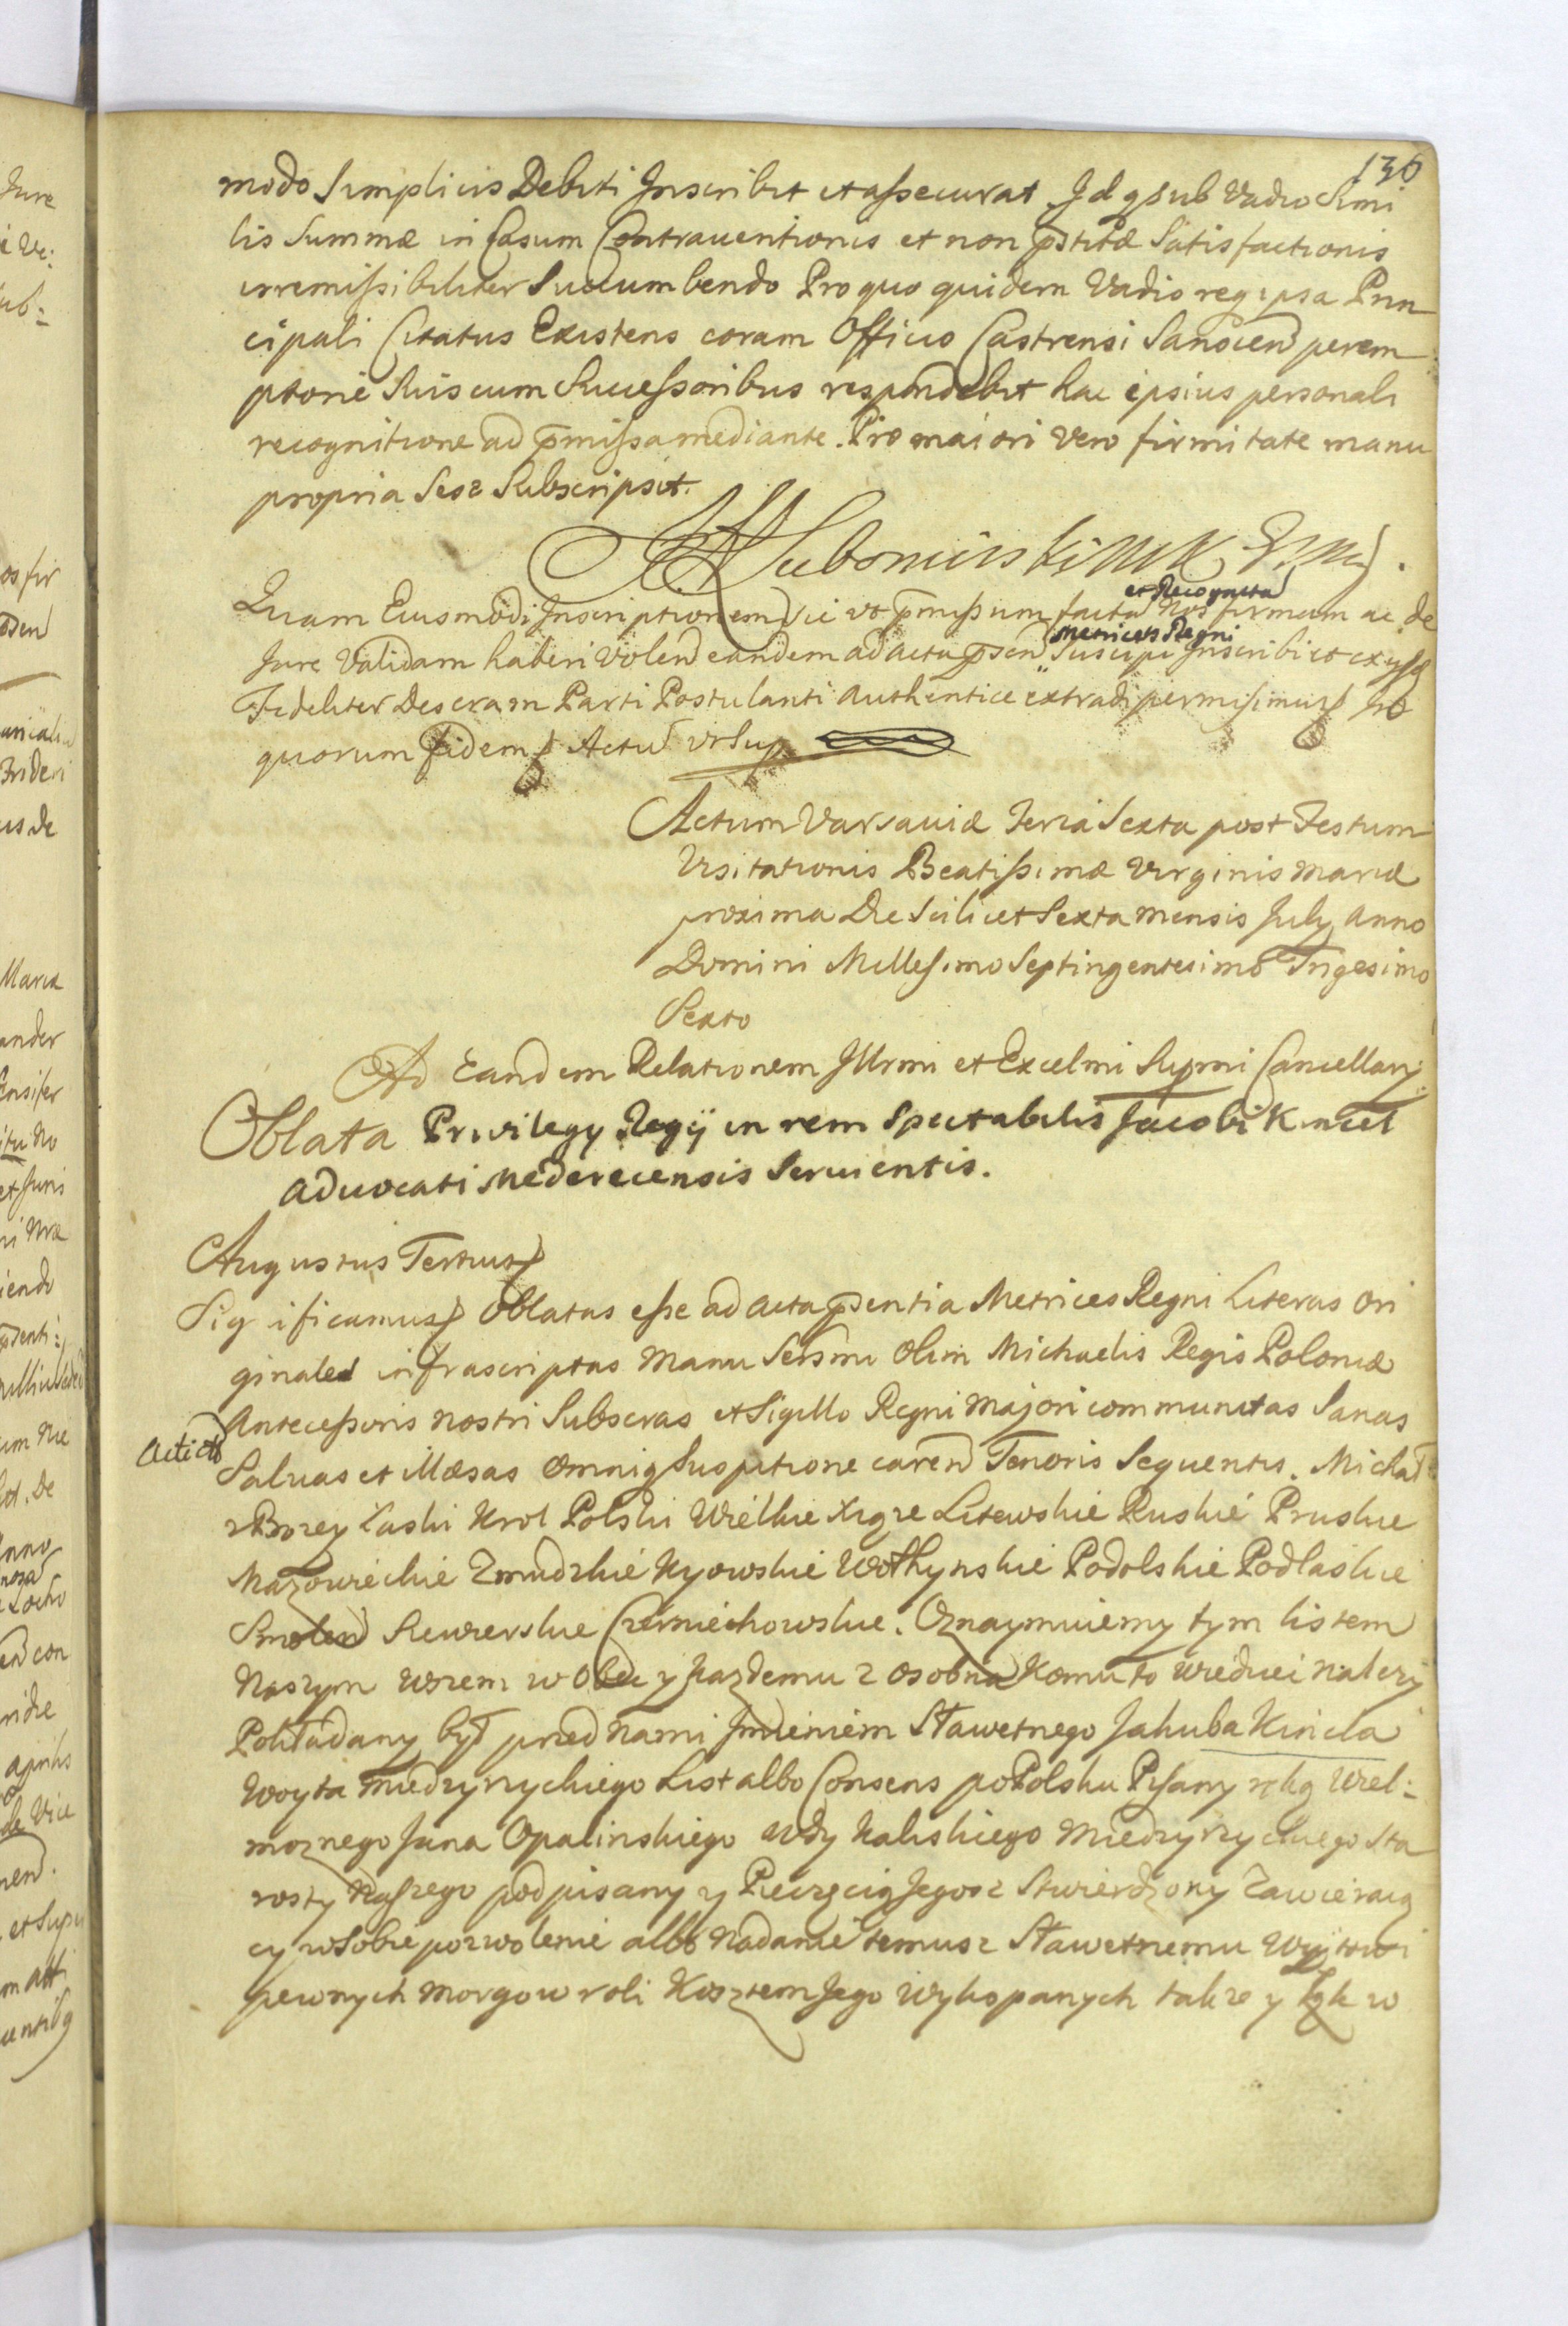 136
modo Simplicis Debiti Inscribit et assecurat Idq sub Vadio Simi
lis Summæ in Casum Contraventionis et non p̄stitæ Satisfactionis
irremissibiliter Succumbendo Pro quo quidem Vadio req ipsa Prin
cipali Citatus Existens coram Officio Castrensi Sanocien perem
ptorie Suis cum Successoribus respondebit hac ipsius personali
recognitione ad p̄missa mediante. Pro maiori vero firmitate manu
propria Sese Subscripsit.
Lubomirski
et Recognita
Quam Eiusmodi Inscriptionem Sic ut p̄missum facta Nos firmam ac de
Metrices Regni
Jure Validam haberi volen eandem ad acta p̄sen Suscipi Inscribi et ex ysq
Fideliter Descram Parti Postulanti authentice extradi permisimus In
quorum fidem Actu ut Sup
Actum Varsaviæ Feria Sexta post Festum
Visitationis Beatissimæ Virginis Mariæ
proxima Die Scilicet Sexta mensis July Anno
Domini Millesimo Septingentesimo Trigesimo
Sexto
Ad Eandem Relationem Illrmi et Excelmi Supmi Cancellary
Oblata Privilegy Regÿ in rem Spectabilis Jacobi Kincel
advocati Mederecensis Servientis.
Augustus Tertius
Sig ificamus Oblatas esse ad acta p̄sentia Metrices Regni Literas Ori
ginales infrascriptas Manu Sersmi Olim Michaelis Regis Poloniæ
Antecessoris nostri Subscras et Sigillo Regni Majori communitas Sanas
Salvas et illæsas Omniq Suspitione caren Tenoris Sequentis. Michał
z Bozey Łaski Krol Polski Wielkie Xiąze Litewskie Ruskie Pruskie
Mazowieckie Zmudzkie Kyowskie Wołhynskie Podolskie Podlaskie
Smolen Siewierskie Czerniechowskie. Oznaymuiemy tym listem
Naszym wszem w Obec y kazdemu z osobna Komu to wiedziec nalezy
Pokładany był przed Nami Imieniem Sławetnego Jakuba Kincla
Woyta Miedzyrzyckiego List albo Consens po Polsku Pisany ręką Wiel:
moznego Jana Opalinskiego Wdy Kaliskiego Miedzyrzyckiego Sta
rosty Naszego podpisany y Pieczęcią Jegosz Stwierdzony Zawieraią
cy w Sobie pozwolenie albo Nadanie temusz Sławetnemu Woytowi
pewnych Morgow roli Kosztem Jego Wykopanych takze y Łąk w